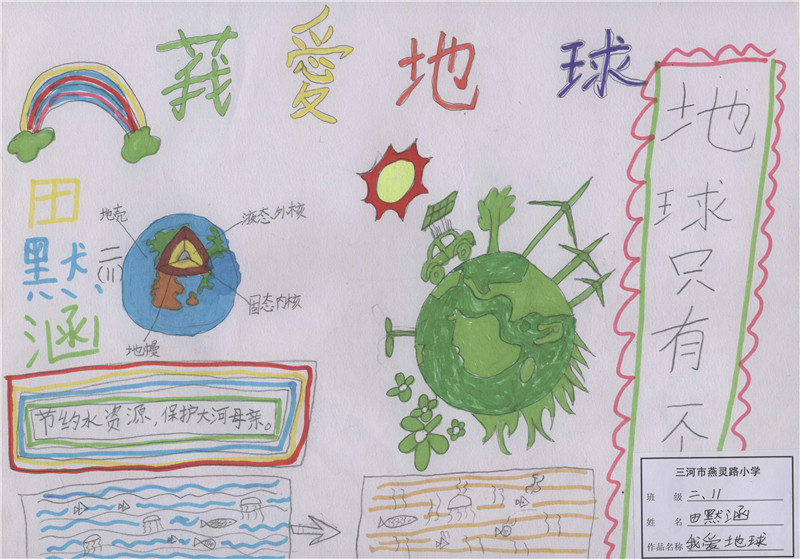 莪愛地球
田默涵
二(11)
地壳
液态外核
固态内核
地幔
节约水资源，保护大河母亲。
地球只有一个
三河市燕灵路小学
班 级 二、11
姓 名 田默涵
作品名称 我爱地球